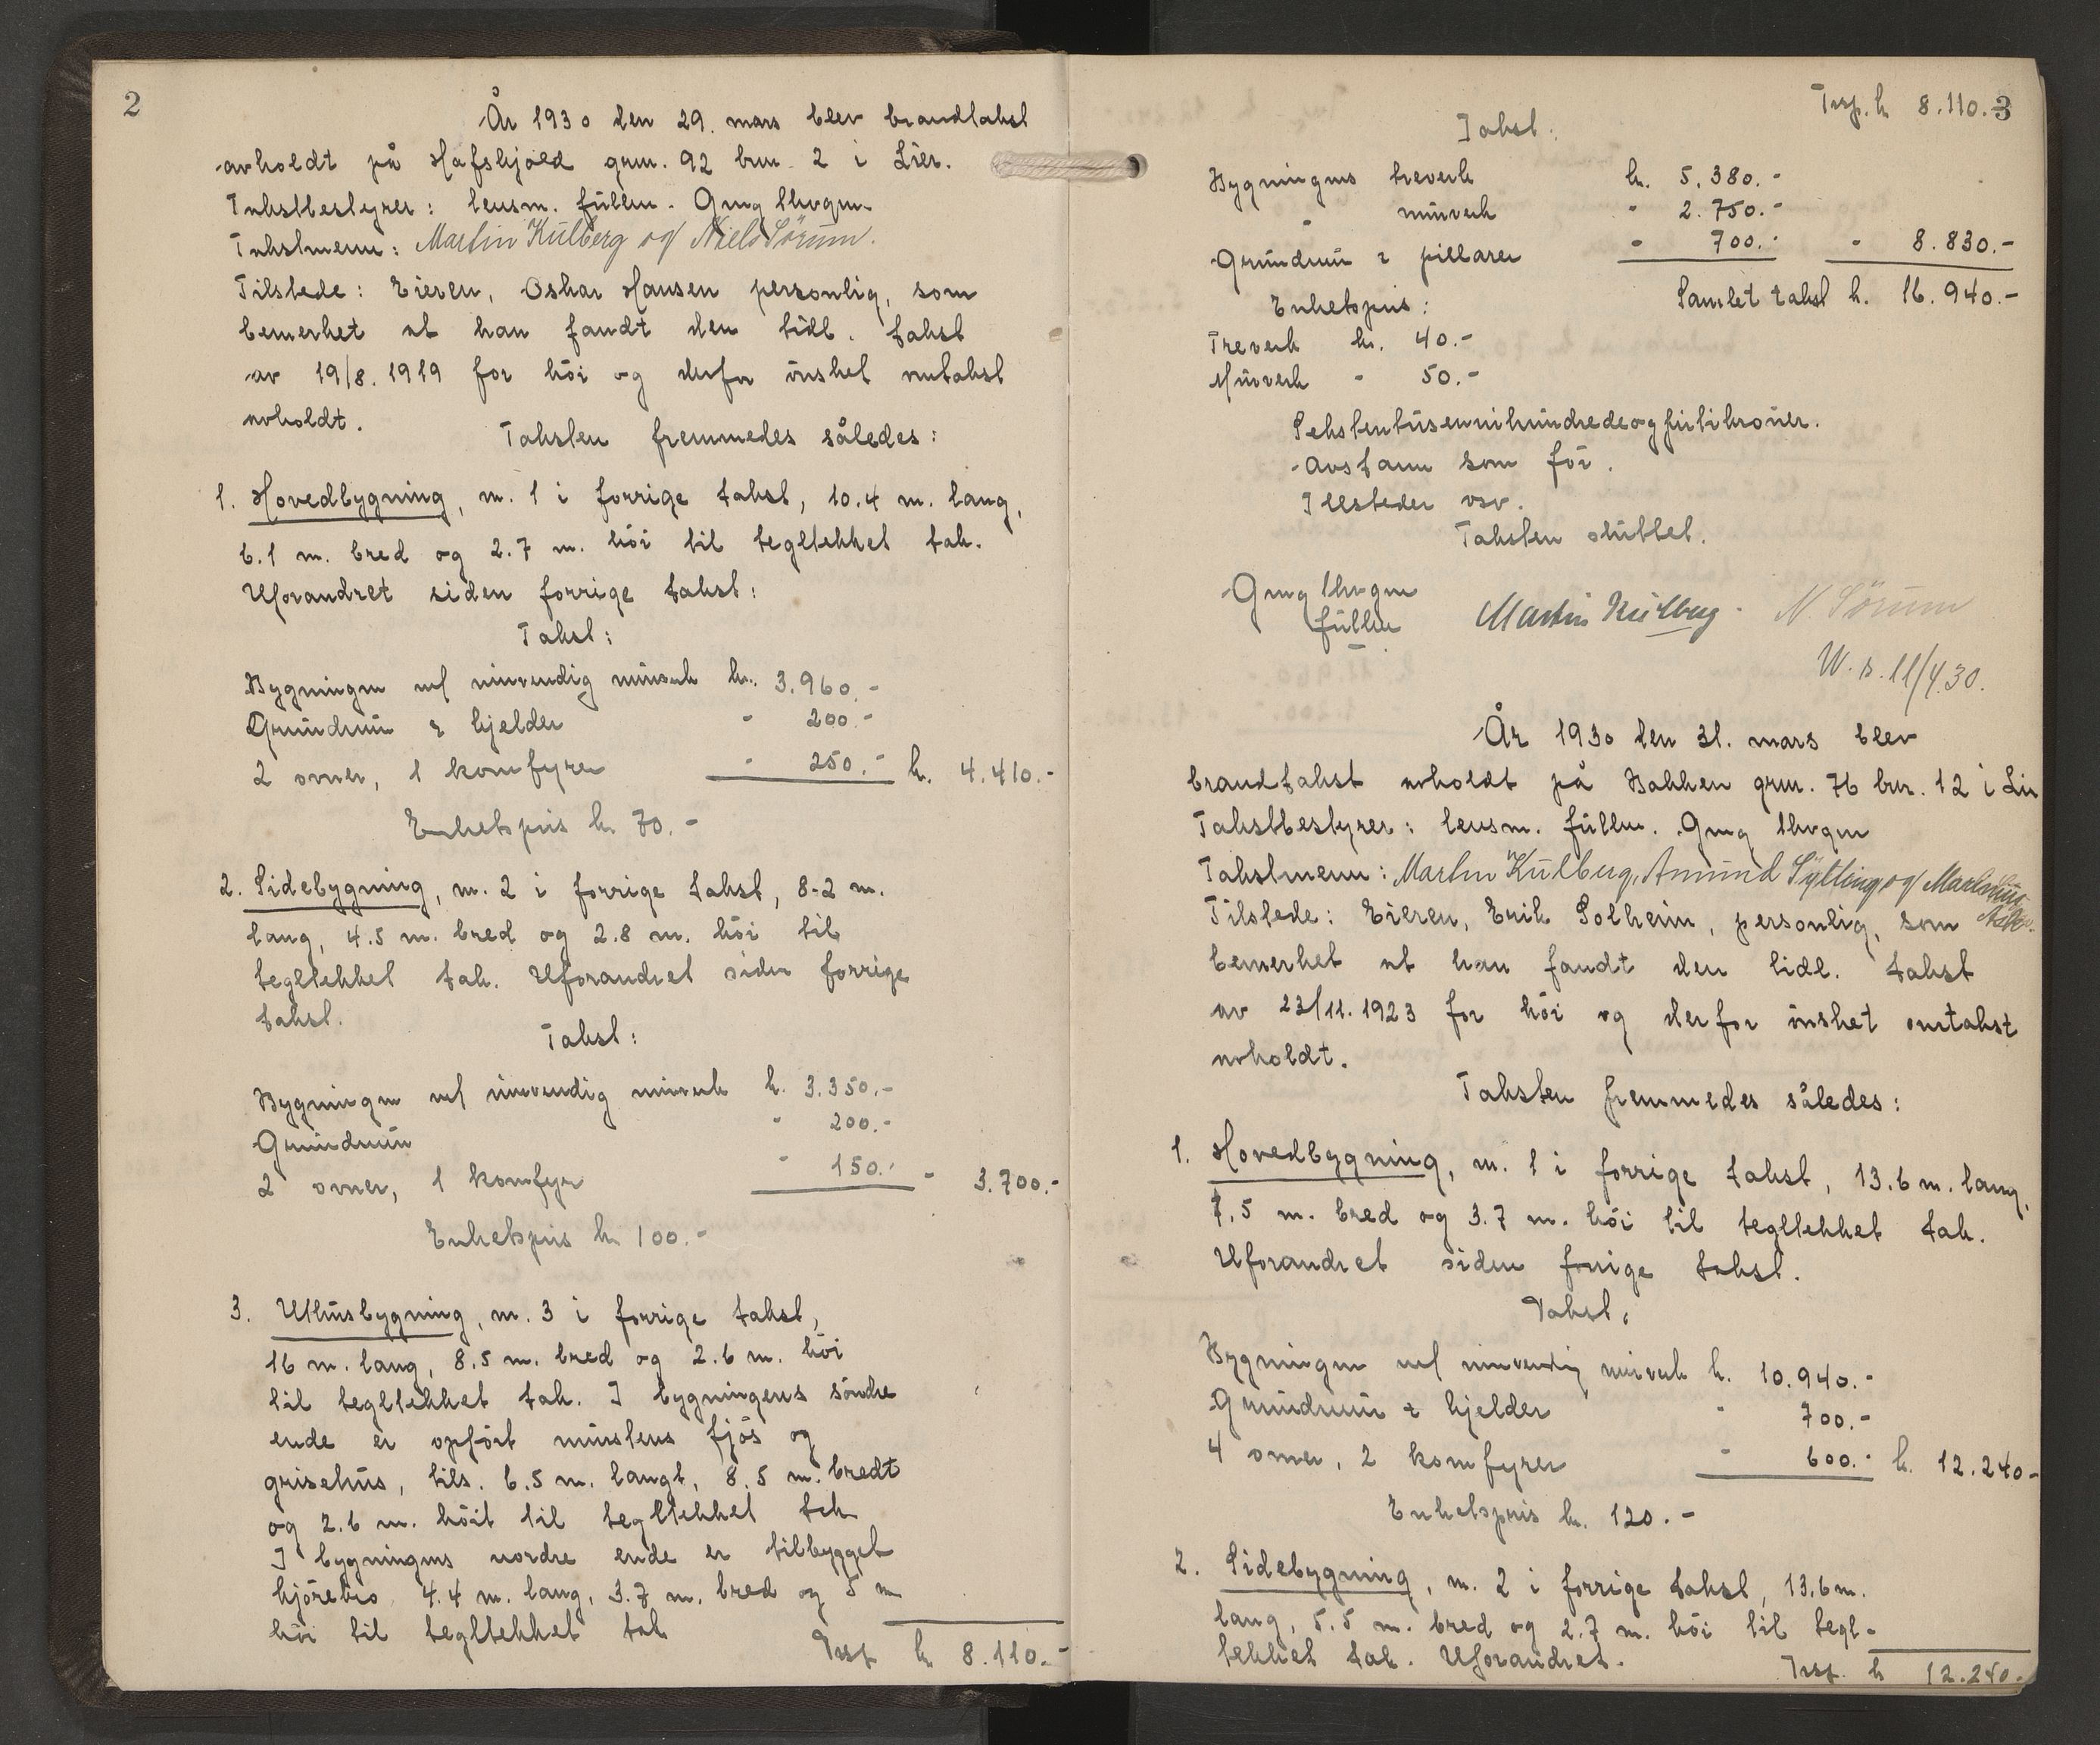 2
År 1930 den 29. mars blev brandtakst
avholdt på Hafskjold grnr. 92 brnr. 2 i Lier.
Takstbestyrer: lensm. fullm.
Takstmenn: Martin Kulberg og Niels Sörum.
Tilstede: Eieren, Oskar Hansen personlig, som
bemerket at han fandt den tidl. takst
av 19/8. 1919 for höi og derfor önsket omtakst
avholdt.
Taksten fremmedes således:
1. Hovedbygning, nr. 1 i forrige takst, 10.4 m. lang,
6.1 m. bred og 2.7 m. höi til tegltekket tak.
Uforandret siden forrige takst:
Takst:
Bygningen m/ innvendig murverk kr. 3.960.-
Grundmur & kjelder " 200.-
2 ovner, 1 komfyrer " 250.- kr. 4.410.-
Enhetspris kr. 70.-
2. Sidebygning, nr. 2 i forrige takst, 8.2 m.
lang, 4.5 m. bred og 2.8 m. höi til
tegltekket tak. Uforandret siden forrige
takst.
Takst:
Bygningen m/ innvendig murverk kr. 3.350.-
Grundmur " 200.-
2 ovner, 1 komfyr " 150.- " 3.700.-
Enhetspris kr. 100.-
3. Uthusbygning, nr. 3 i forrige takst,
16 m. lang, 8.5 m. bred og 2.6 m. höi
til tegltekket tak. I bygningens söndre
ende er opfört murstens fjös og
grisehus, tils. 6.5 m. langt, 8.5 m. bredt
og 2.6 m. höit til tegltekket tak
I bygningens nordre ende er tilbygget
kjörebro 4.4 m. lang, 3.7 m. bred og 5 m
höi til tegltekket tak
Trsp kr. 8.110.-
3
Trsp. kr 8.110.-
Takst:
Bygningens treverk kr. 5.380.-
" murverk " 2.750.-
Grundmur & pillarer " 700.- " 8.830.-
Samlet takst kr. 16.940.-
Enhetspris:
Treverk kr. 40.-
Murverk " 50.-
Sekstentusennihundredeogførtikroner.
Avstann som för.
Ildsteder osv.
Taksten sluttet.
fullm Martin Kulberg. N. Sörum
W. s. 11/4.30.
År 1930 den 31. mars blev
brandtakst avholdt på Bakken grnr. 76 bnr. 12 i Lier
Takstbestyrer: lensm. fullm.
Takstmenn: Martin Kulberg, Amund Sylling og Martinius
Tilstede: Eieren, Erik Solheim, personlig, som
bemerket at han fandt den tidl. takst
av 23/11. 1923 for höi og derfor önsket omtakst
avholdt.
Taksten fremmedes således:
1. Hovedbygning, nr. 1 i forrige takst, 13.6 m. lang,
7,5 m. bred og 3.7 m. höi til tegltekket tak.
Uforandret siden forrige takst.
Takst:
Bygningen m/ innvendig murverk kr. 10.940.-
Grundmur & kjelder " 700.-
4 ovner, 2 komfyrer " 600.- kr. 12.240-
Enhetspris kr. 120.-
2. Sidebygning, nr. 2 i forrige takst, 13.6 m.
lang, 5.5 m. bred og 2.7 m. höi til tegl-
tekket tak. Uforandret.
Trsp. kr 12.240.-